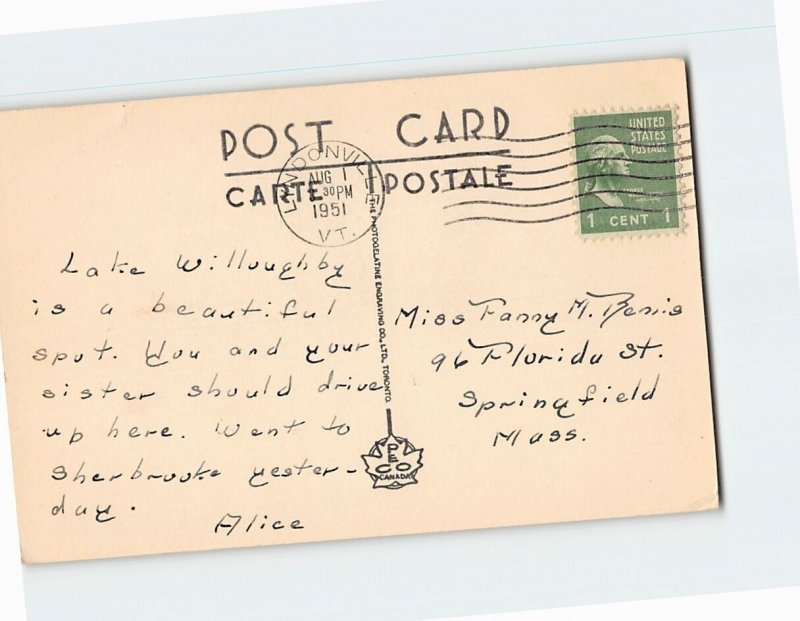 POST CARD
CARTE POSTALE
LYNDONVILLE
AUG 1
30 PM
1951
VT.
UNITED
STATES
POSTAGE
1 CENT 1
THE PHOTOGELATINE ENGRAVING CO., LTD. TORONTO.
PECO
CANADA
Lake Willoughby
is a beautiful
spot. You and your
sister should drive
up here. Went to
Sherbrooke yester-
day.
Alice
Miss Fanny M. Bemis
96 Florida St.
Springfield
Mass.